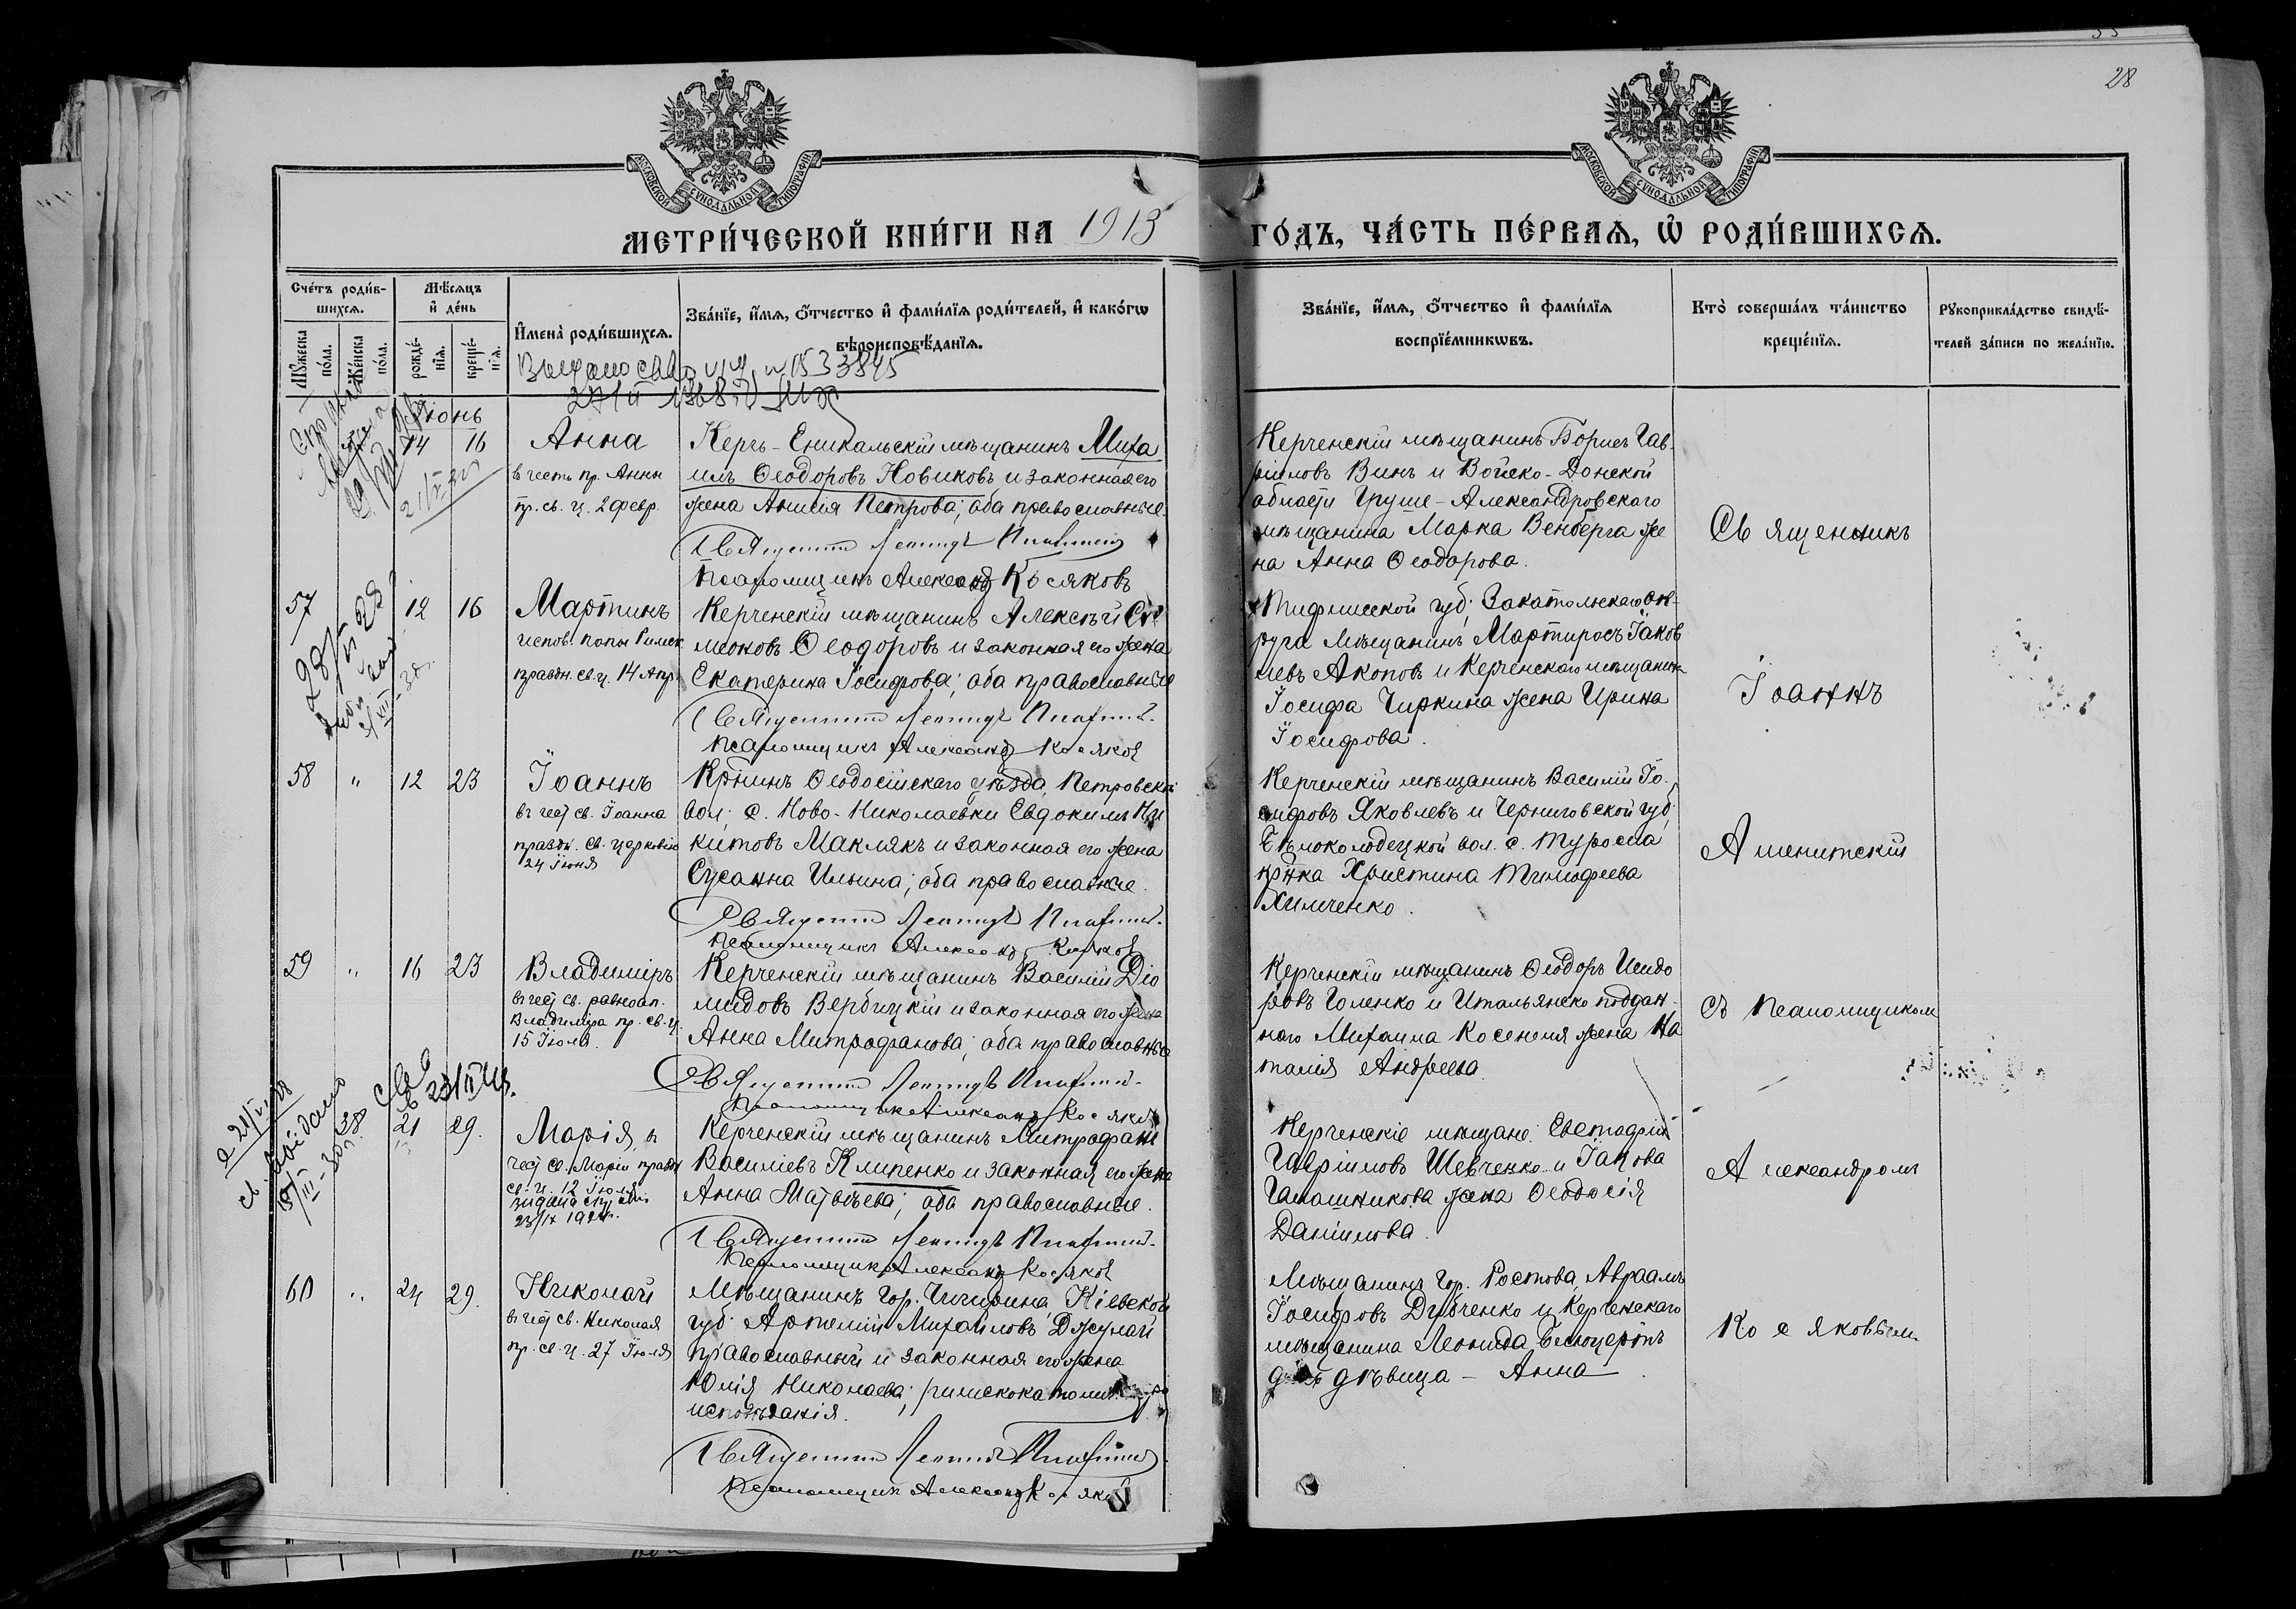 28
МОСКОВСКОЙ СѴНОДАЛЬНОЙ ТИПОГРАФІИ
МОСКОВСКОЙ СѴНОДАЛЬНОЙ ТИПОГРАФІИ
МЕТРИ́ЧЕСКОЙ КНИ́ГИ НА 1913
ГО́ДЪ, ЧА́СТЬ ПЕ́РВАѦ, Ѡ҆ РОДИ́ВШИХСѦ.
Сче́тъ роди́в-
шихсѧ.
Мѣ́сѧцъ
и҆ де́нь
Мꙋ́жеска по́ла.
Же́нска по́ла.
рожде́-
нїѧ.
креще́-
нїѧ.
И҆мена̀ роди́вшихсѧ.
Зва́нїе, и҆́мѧ, ѻ҆́тчество и҆ фами́лїѧ роди́телей, и҆ како́гѡ
вѣроисповѣ́данїѧ.
Зва́нїе, и҆́мѧ, ѻ҆́тчество и҆ фами́лїѧ
воспрїе́мникѡвъ.
Кто̀ соверша́лъ та́инство
креще́нїѧ.
Рꙋкоприкла́дство свидѣ́-
телей за́писи по жела́нїю.
Іюнь
14 16 Анна
въ честь пр. Анны
пр. св. ц. 2 февр.
Керчь-Еникальскій мѣщанинъ Миха
илъ Ѳеодоровъ Новиковъ и законная его
жена Анисія Петрова; оба православные
Священникъ
Псаломщикъ Александръ Косяковъ
Керченскій мѣщанинъ Борисъ Гав-
ріиловъ Винъ и Войско-Донской
области Груше-Александровскаго
мѣщанина Марка Венберга же
на Анна Ѳеодорова.
Священникъ
57 12 16 Мартинъ
испов. папы Римск
праздн. св. ц. 14 Апр.
Керченскій мѣщанинъ Алексѣй Си
меоновъ Ѳеодоровъ и законная его жена
Екатерина Іосифова; оба православные
Священникъ
Псаломщикъ Александръ Косяковъ
Тифлисской губ. Закатальскаго ок-
руга мѣщанинъ Мартиросъ Іаков
левъ Акоповъ и Керченскаго мѣщанина
Іосифа Чиркина жена Ирина
Іосифова.
Іоаннъ
58 " 12 23 Іоаннъ
въ чес҃т св. Іоанна
праздн. св. церковію
24 Іюня
Кр҃нинъ Ѳеодосійскаго уѣзда, Петровской
вол. с. Ново-Николаевки Евдокимъ Ни
китовъ Маклякъ и законная его жена
Сусанна Ильина; оба православные.
Священникъ
Псаломщикъ Александръ Косяковъ
Керченскій мѣщанинъ Василій Іо-
сифовъ Яковлевъ и Черниговской губ.
Бѣлоколодецкой вол. с. Туросна
кр҃нка Христина Тимофеева
Химченко.
Ашенитскій
59 " 16 23 Владиміръ
въ чес҃т св. равноап.
Владиміра пр. св. ц.
15 Іюля.
Керченскій мѣщанинъ Василій Діо
мидовъ Вербицкій и законная его жена
Анна Митрофанова; оба православные
Священникъ
Псаломщикъ Александръ Косяковъ
Керченскій мѣщанинъ Ѳеодоръ Исидо
ровъ Голенко и Итальянско поддан-
наго Михаила Косенеля жена На
талія Андреева.
съ псаломщикомъ
38 21 29. Марія, въ
чес҃т св. Маріи праздн
св. ц. 12 Іюля
Керченскій мѣщанинъ Митрофанъ
Василіевъ Клипенко и законная его жена
Анна Матвѣева; оба православные.
Священникъ
Псаломщикъ Александръ Косяковъ
Керченскіе мѣщане: Евстафій
Гавріиловъ Шевченко и Іакова
Галашникова жена Ѳеодосія
Даніилова.
Александромъ
60 " 24 29. Николай
въ чес҃т св. Николая
пр. св. ц. 27 Іюля
Мѣщанинъ гор. Чигирина Кіевской
губ. Артемій Михайловъ Джулай
православный и законная его жена
Юлія Николаева; римскокатолич.
исповѣданія.
Священникъ
Псаломщикъ Александръ Косяковъ
Мѣщанинъ гор. Ростова, Авраамъ
Іосифовъ Дубченко и Керченскаго
мѣщанина Леонида
дѣвица - Анна
Косяковымъ